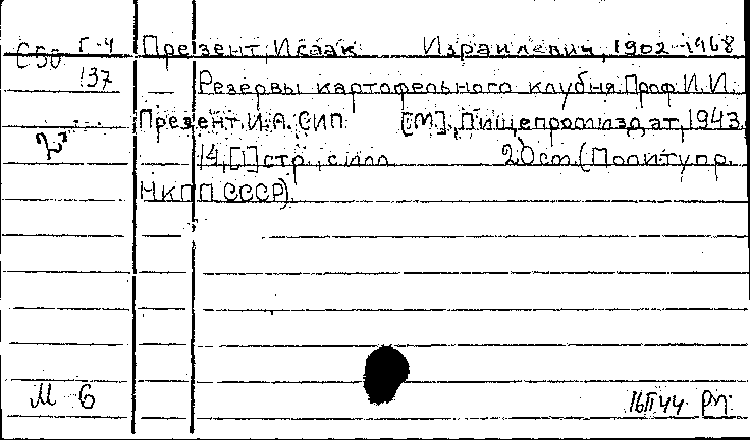 С50 Г-4 Презент, Исаак Израилевич, 1902-1968
137 — Резервы картофельного клубня. Проф. И.И.
Презент, И.А. СИП [М], Пищепромиздат, 1943
14, [1] стр., с илл 20 см. (Политупр.
НКПП СССР).
М 6
16 II 44 рп.